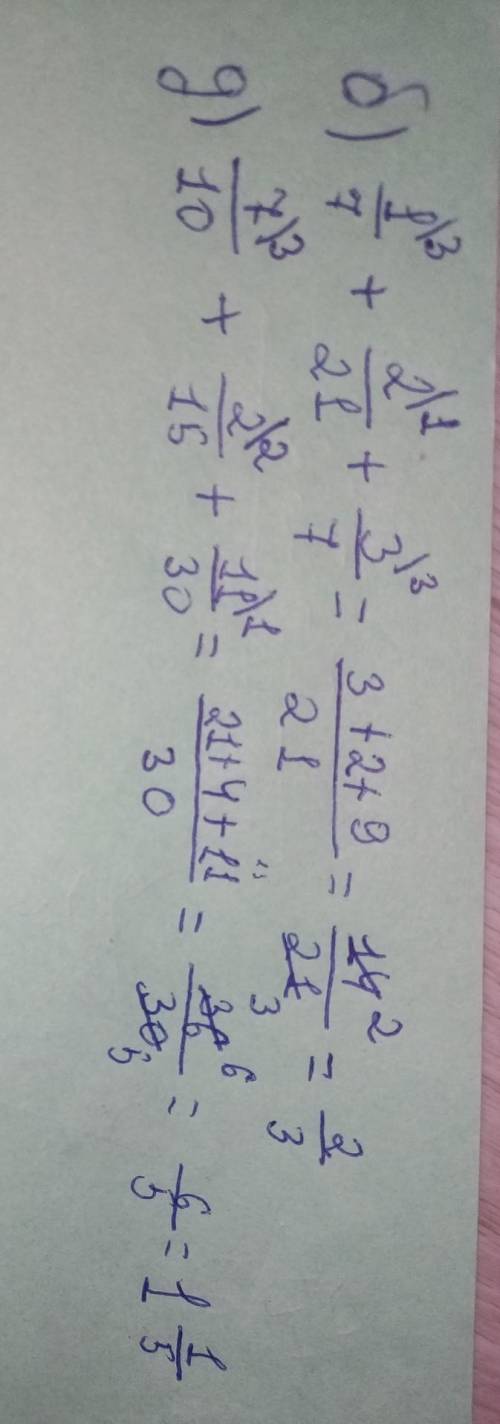 б) 1\3/7 + 2\1/21 + 3\3/7 = 3+2+9/21 = 14 2/21 3 = 2/3
д) 7\3/10 + 2\2/15 + 11\1/30 = 21+4+11/30 = 36 6/30 5 = 6/5 = 1 1/5